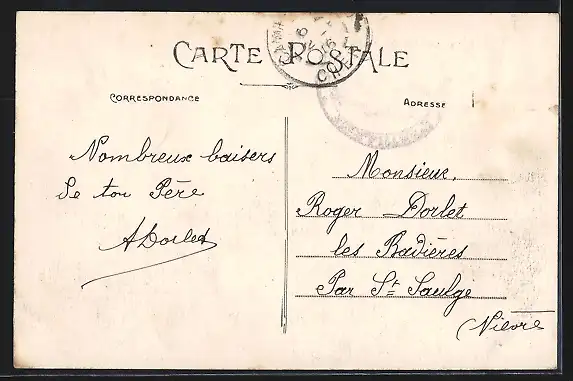 CARTE POSTALE
CORRESPONDANCE
ADRESSE
Nombreux baisers
De ton Père
A Dorlet
Monsieur,
Roger Dorlet
les Badières
Par St Saulge
(Nievre